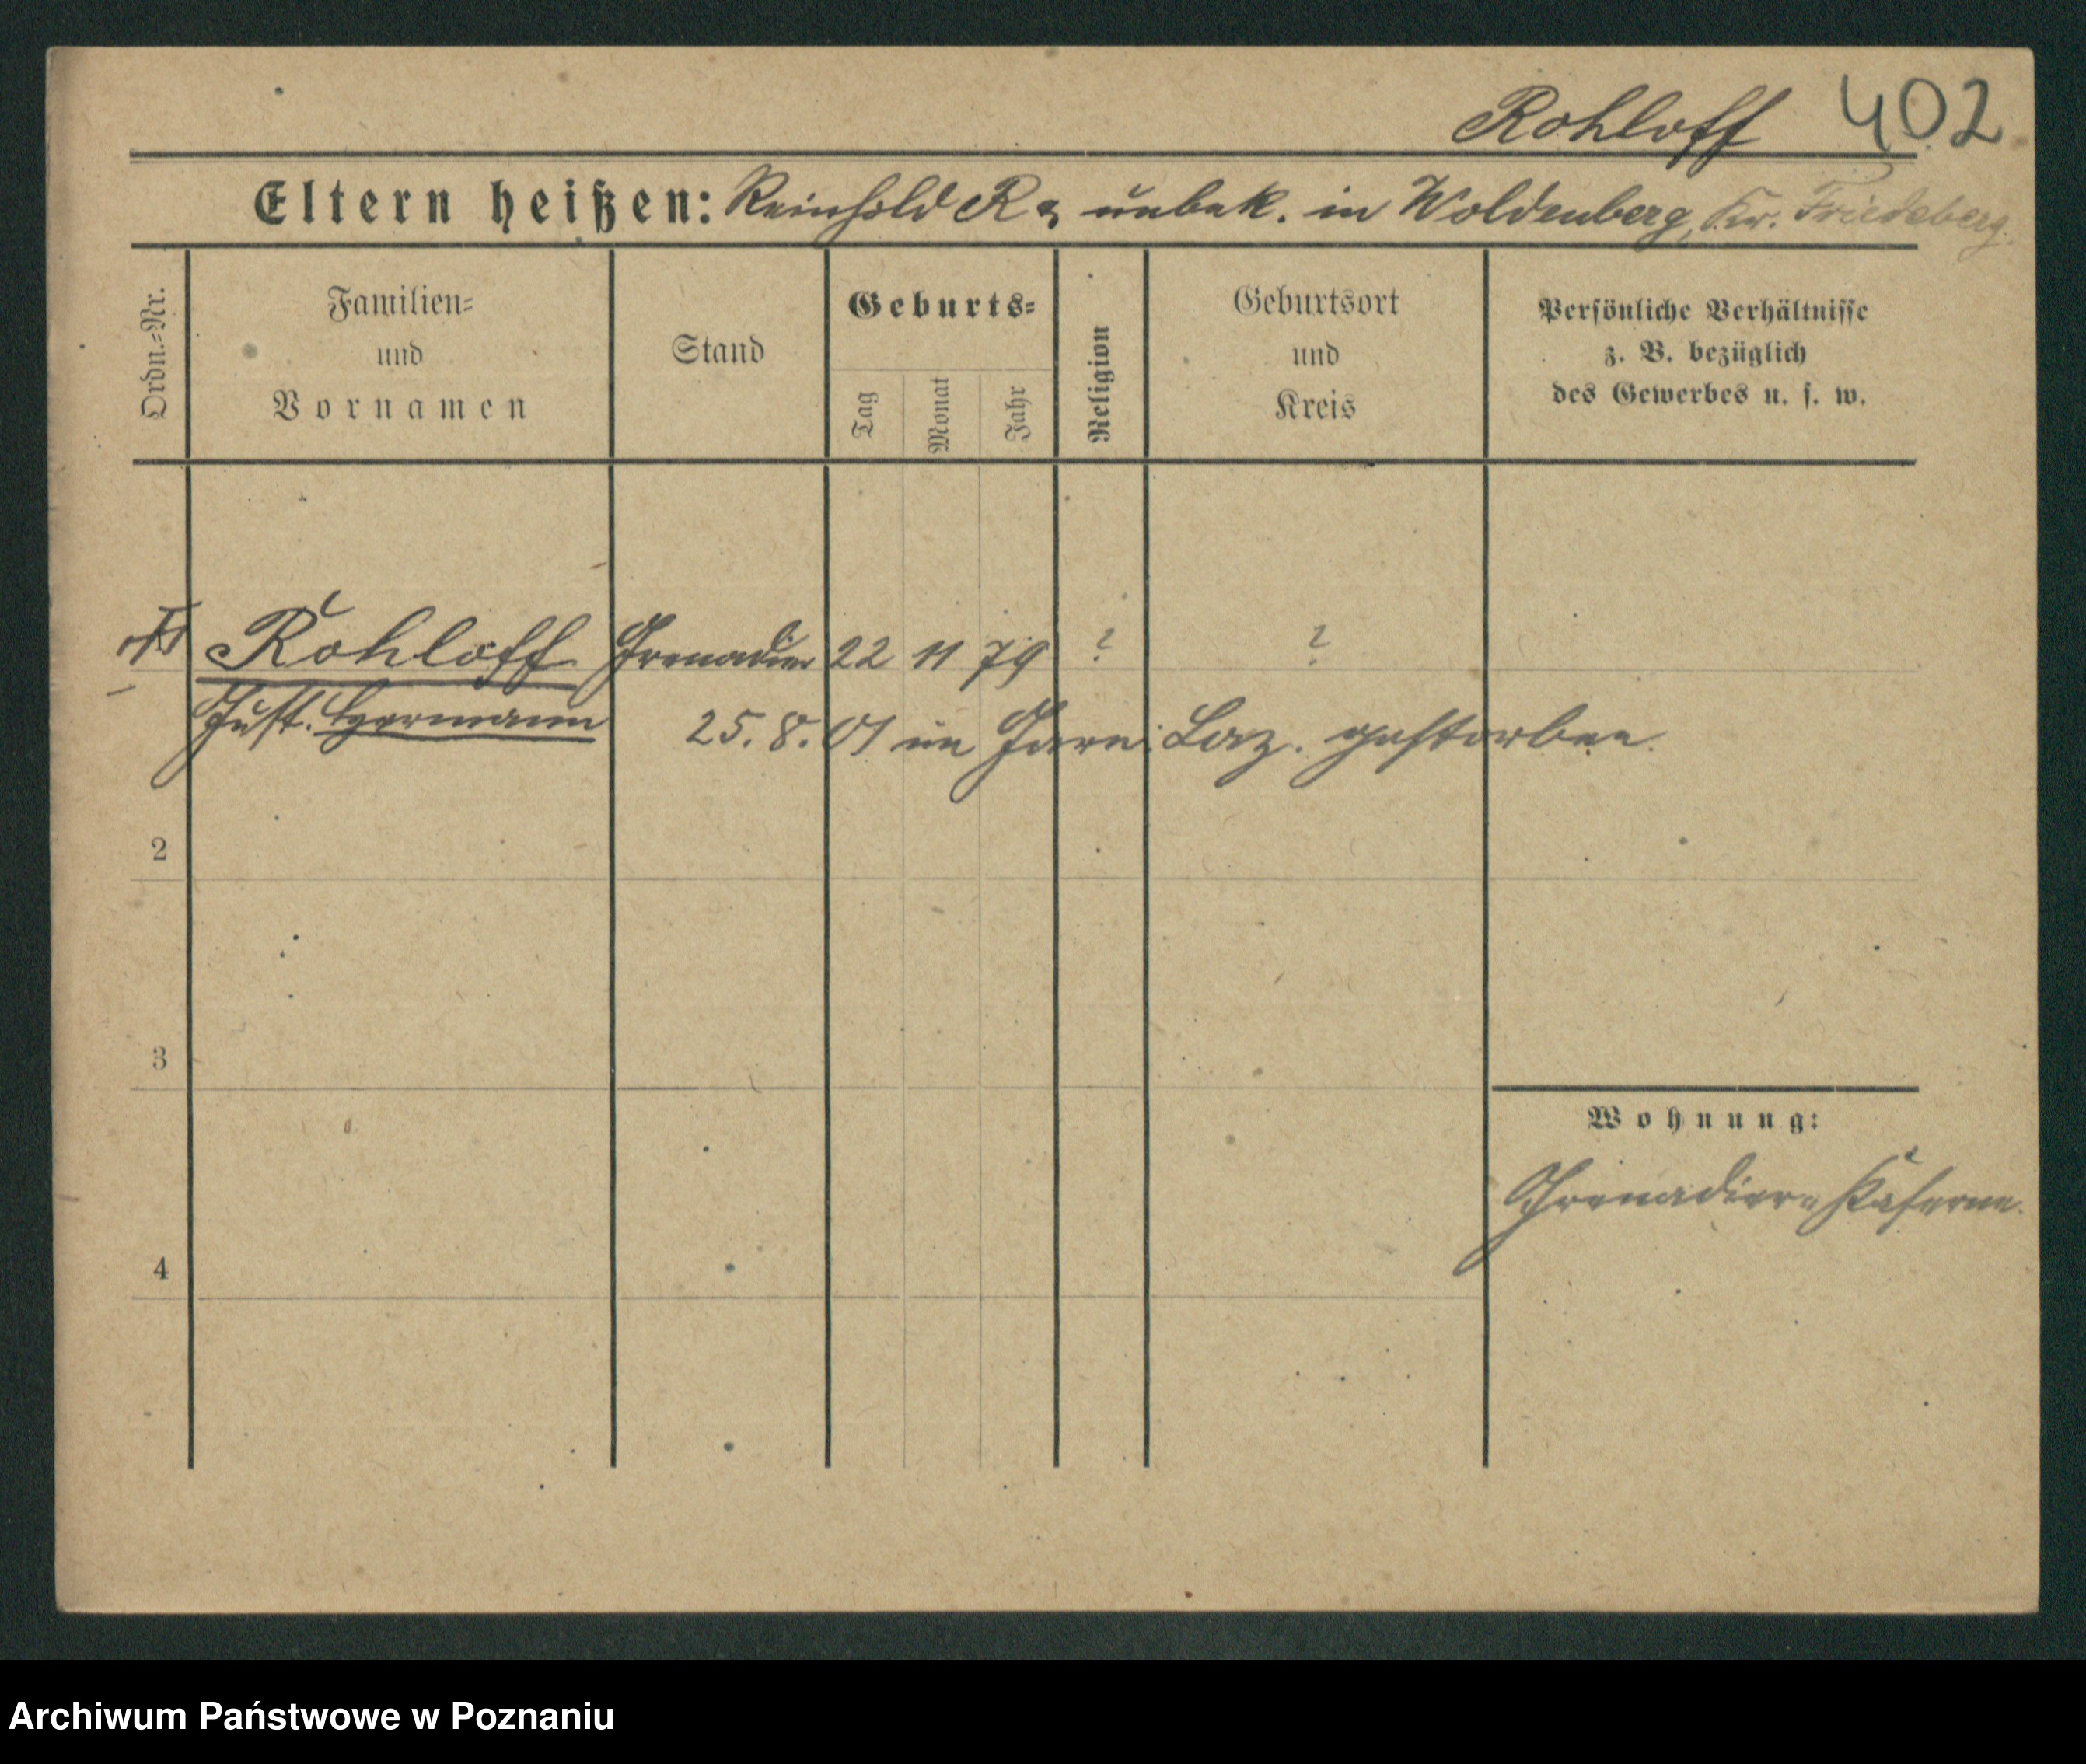 Rohloff 402
Eltern heißen: Reinhold R. u. unbek. in Woldenberg, Kr. Friedeberg.
Ordn.=Nr.
Familien=
und
Vornamen
Stand
Geburts=
Tag
Monat
Jahr
Religion
Geburtsort
und
Kreis
Persönliche Verhältnisse
z. B. bezüglich
des Gewerbes u. s. w.
Rohloff Grenadier 22 11 79 ? ?
Just. Hermann 25.8.01 im Garn. Laz. gestorben.
2
3
Wohnung:
Grenadier=Kaserne.
4
Archiwum Państwowe w Poznaniu